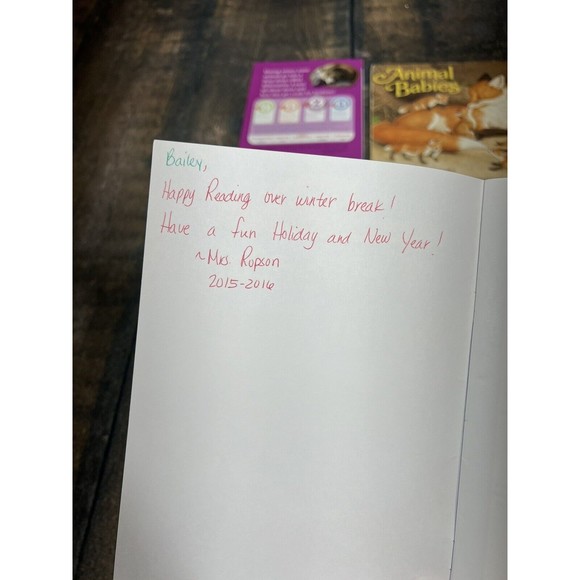 Animal
Babies
Bailey,
Happy Reading over winter break!
Have a fun Holiday and New Year!
~Mrs. Ropson
2015-2016